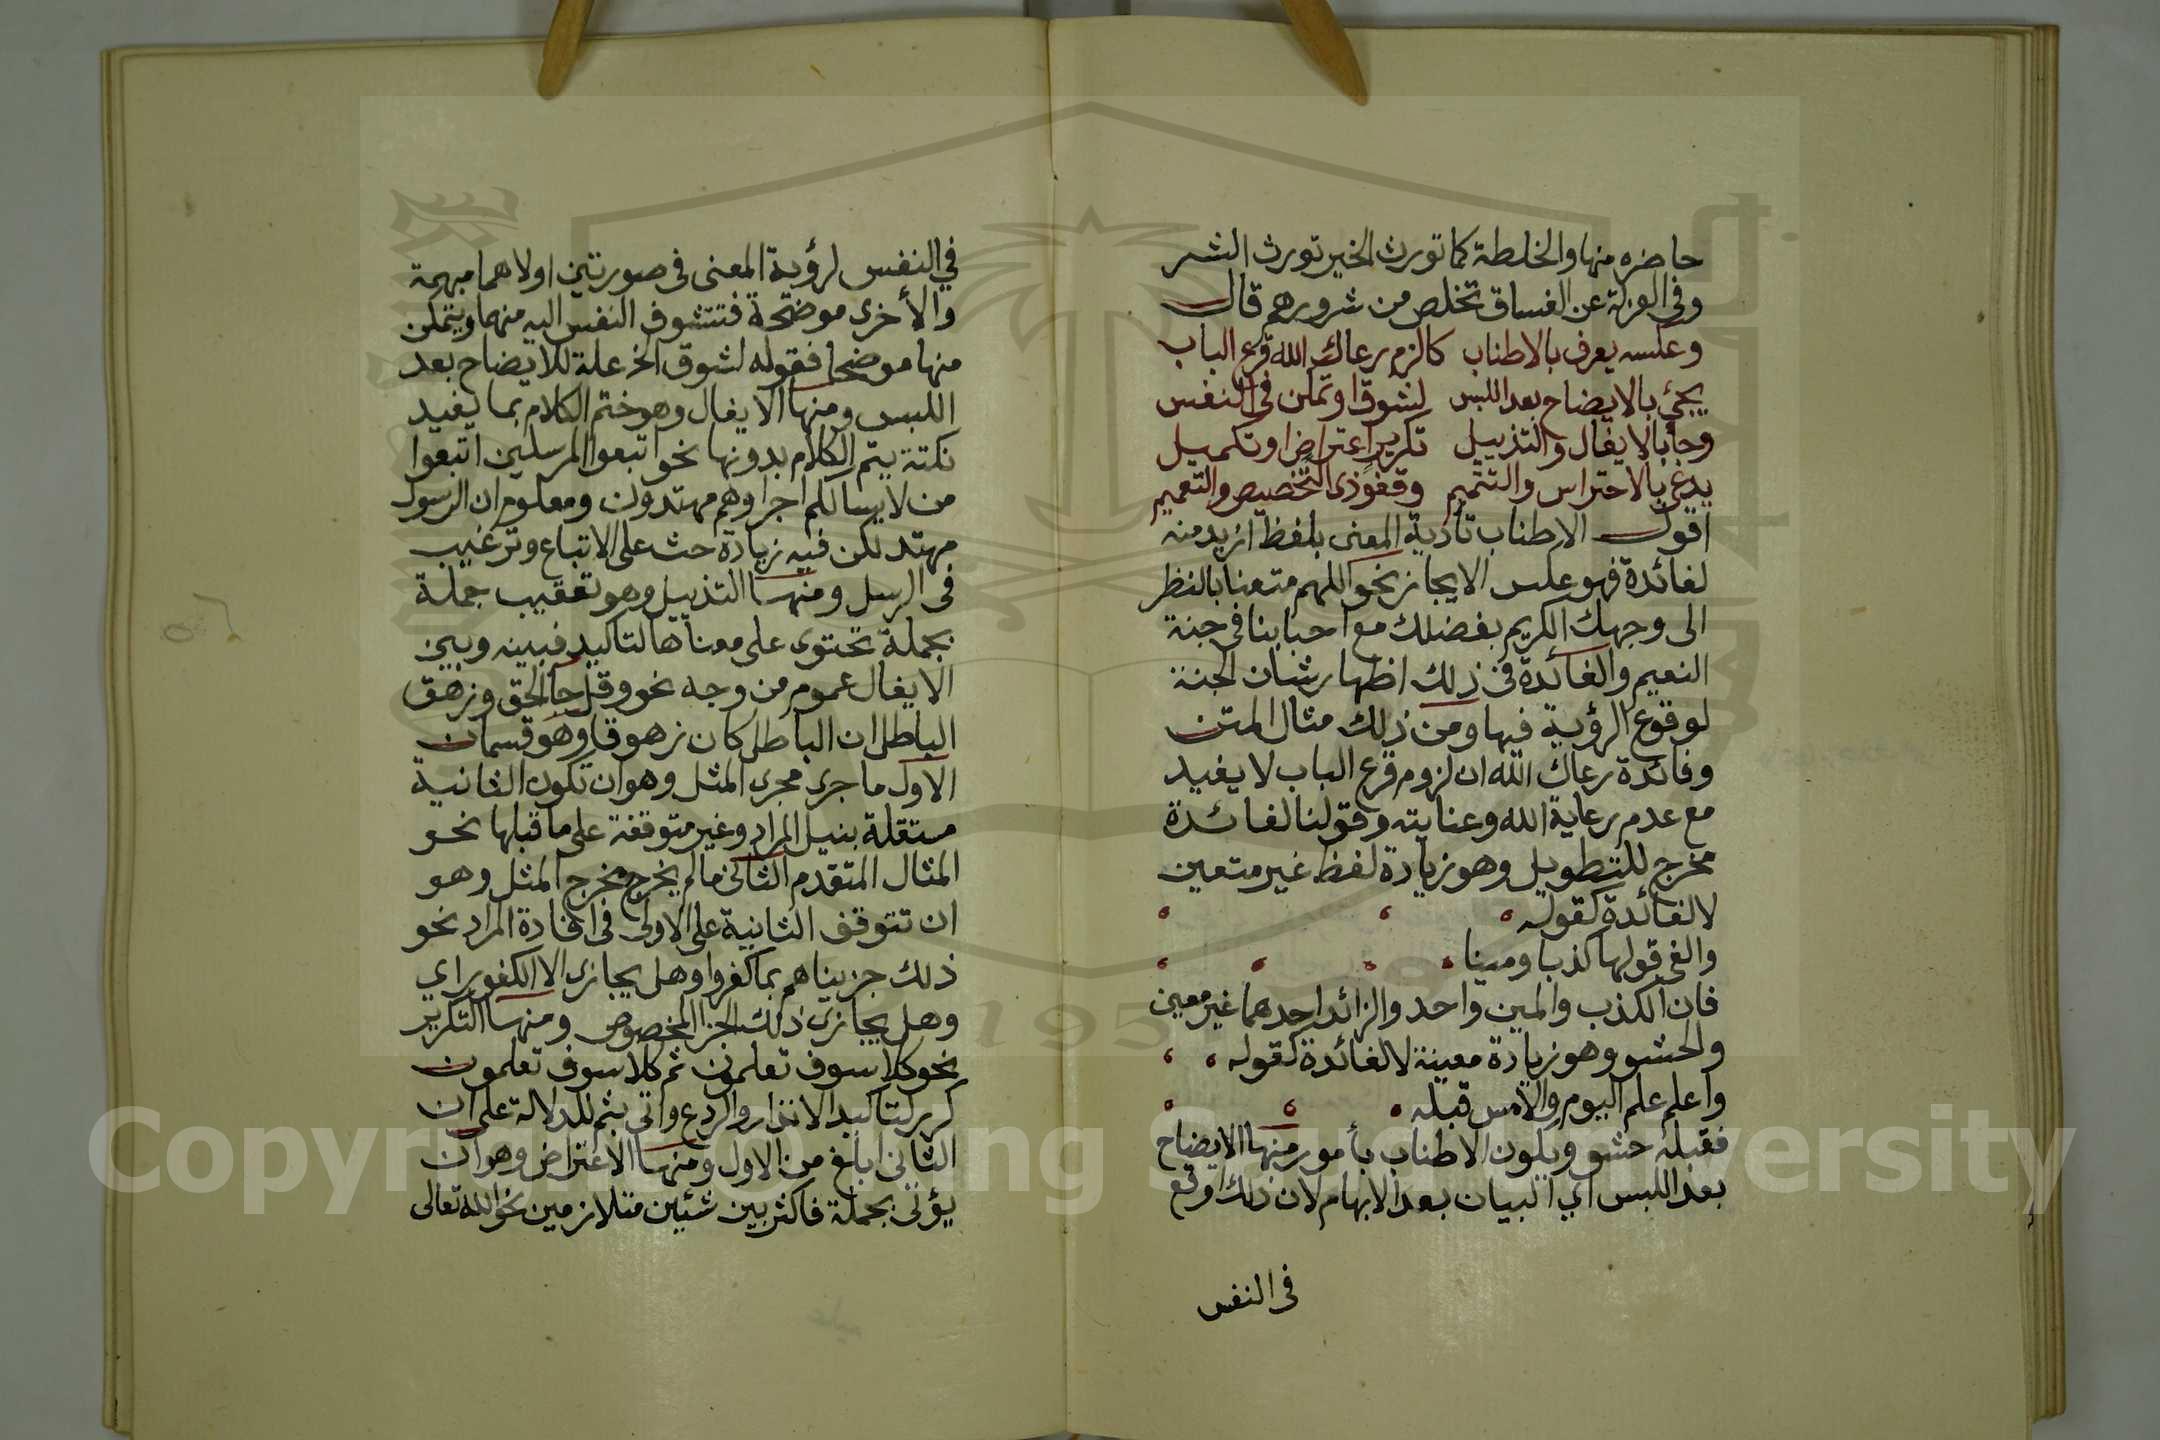 حاضره منها والخلطة كما تورث الخير تورث الشر
وفى العزلة عن الفساق تخلص من شرورهم قال
وعكسه يعرف بالاطناب كالزم رعاك الله قرع الباب
يجئ بالايضاح بعد اللبس لشوق او تمكن فى النفس
وجا بالايغال والتذييل تكرير اعتراض او تكميل
يدعى بالاحتراس والتتميم وقفو ذى التخصيص والتعميم
اقول الاطناب تأدية المعنى بلفظ ازيد منه
لفائدة فهو عكس الايجاز نحو اللهم متعنا بالنظر
الى وجهك الكريم بفضلك مع احبابنا فى جنة
النعيم والفائدة فى ذلك اظهار شان الجنة
لوقوع الرؤية فيها ومن ذلك مثال المتن
وفائدة رعاك الله ان لزوم قرع الباب لا يفيد
مع عدم رعاية الله وعنايته وقولنا لفائدة
مخرج للتطويل وهو زيادة لفظ غير متعين
لا لفائدة كقوله
والفى قولها كذبا ومينا
فان الكذب والمين واحد والزائد احدهما غير معين
والحشو وهو زيادة معينة لا لفائدة كقوله
واعلم علم اليوم والامس قبله
فقبله حشو ويكون الاطناب بأمور منها الايضاح
بعد اللبس اي البيان بعد الابهام لان ذلك اوقع
فى النفس
في النفس لرؤية المعنى فى صورتين اولاهما مبهمة
والأخرى موضحة فتتشوف النفس اليه منهما ويتمكن
منها موضحا فقوله لشوق الخ علة للايضاح بعد
اللبس ومنها الايغال وهو ختم الكلام بما يفيد
نكتة يتم الكلام بدونها نحو اتبعوا المرسلين اتبعوا
من لا يسالكم اجرا وهم مهتدون ومعلوم ان الرسول
مهتد لكن فيه زيادة حث على الاتباع وترغيب
فى الرسل ومنها التذييل وهو تعقيب جملة
بجملة تحتوى على معناها لتاكيد فبينه وبين
الايغال عموم من وجه نحو وقل جا الحق وزهق
الباطل ان الباطل كان زهوقا وهو قسمان
الاول ما جرى مجرى المثل وهو ان تكون الثانية
مستقلة بنيل المراد وغير متوقفة على ما قبلها نحو
المثال المتقدم الثانى ما لم يخرج مخرج المثل وهو
ان تتوقف الثانية على الاولى فى افادة المراد نحو
ذلك جزيناهم بما كفروا وهل يجازى الا الكفور اي
وهل يجازى ذلك الجزا المخصوص ومنها التكرير
نحو كلا سوف تعلمون ثم كلا سوف تعلمون
كرر لتاكيد الانذار والردع واتى بثم للدلالة على ان
الثانى ابلغ من الاول ومنها الاعتراض وهو ان
يؤتى بجملة فاكثر بين شئين متلازمين نحو الله تعالى
Copyright © King Saud University